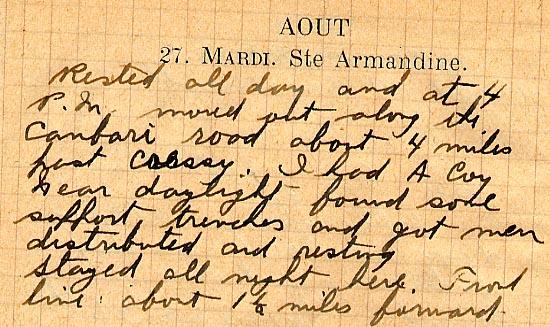 AOUT
27. MARDI. Ste Armandine.
Rested all day and at 4
P.M. moved out along the
Cambari road about 4 miles
past Cressy. I had A Coy
near daylight found some
support trenches and got men
distributed and resting
stayed all night here. Front
line about 1½ miles forward.